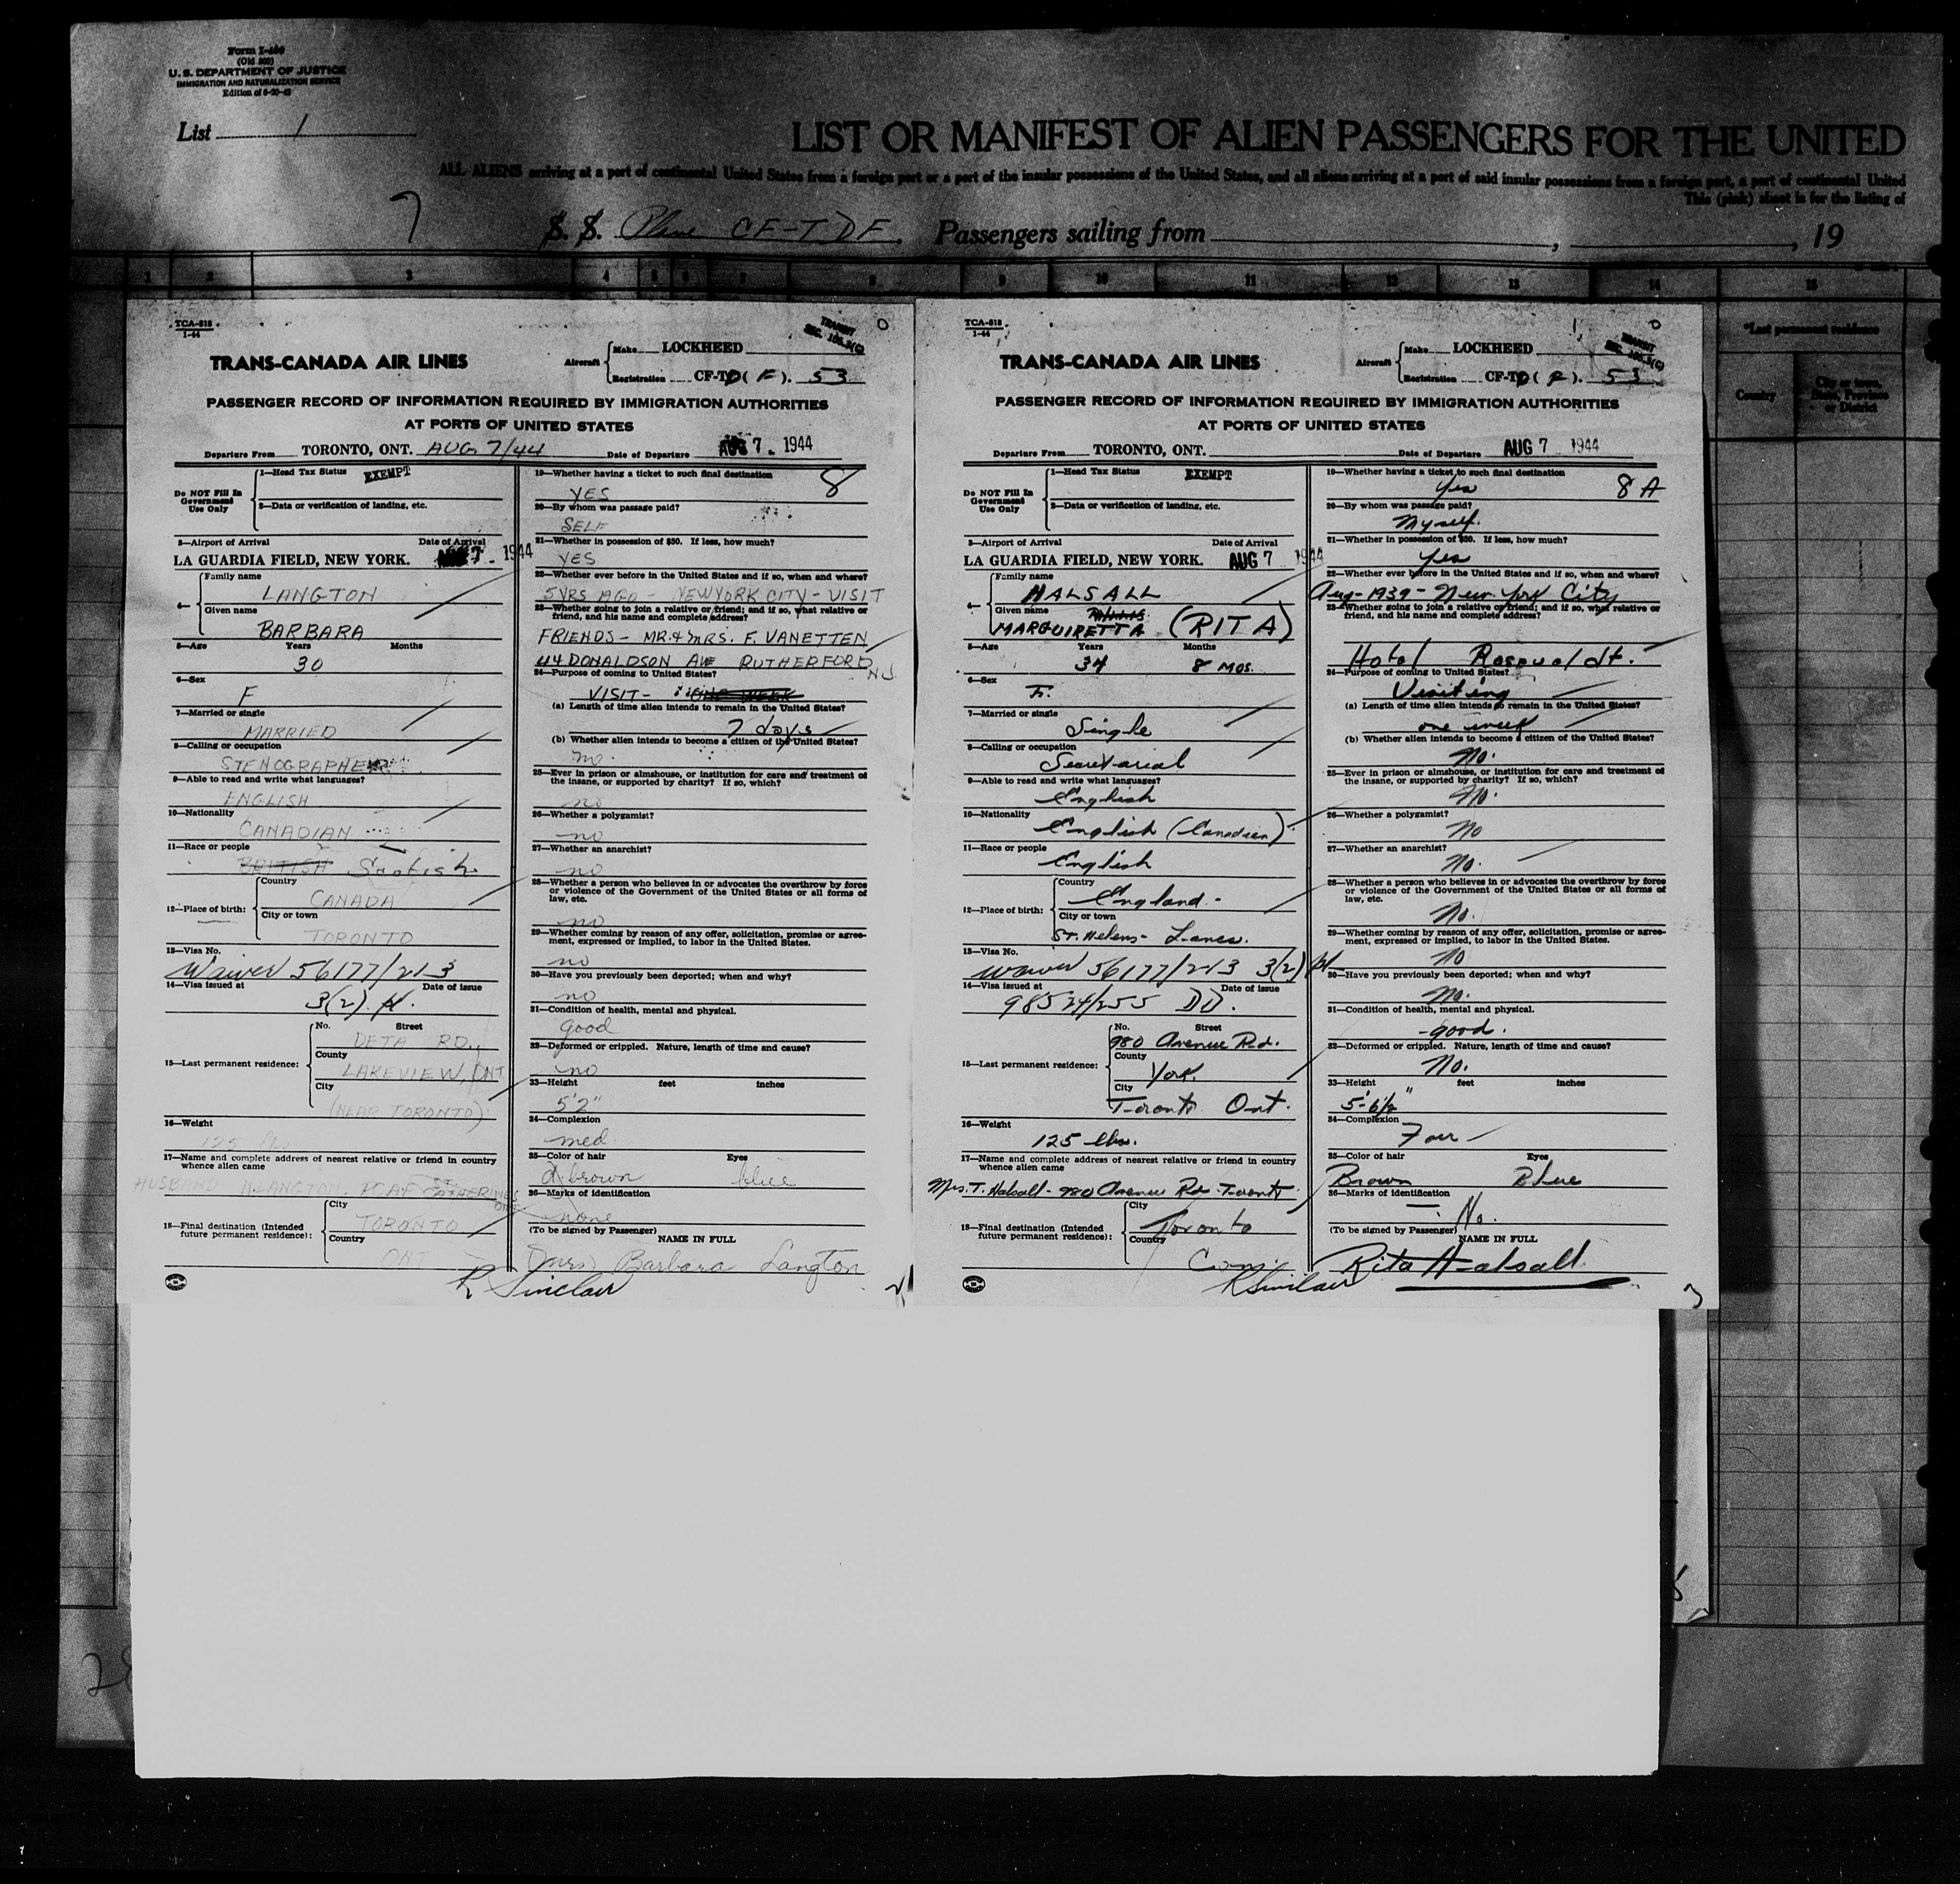 Form I-400
(Old 500)
U. S. DEPARTMENT OF JUSTICE
IMMIGRATION AND NATURALIZATION SERVICE
Edition of 6-20-42
List 1
LIST OR MANIFEST OF ALIEN PASSENGERS FOR THE UNITED
ALL ALIENS arriving at a port of continental United States from a foreign port or a port of the insular possessions of the United States, and all aliens arriving at a port of said insular possessions from a foreign port, a port of continental United
This (pink) sheet is for the listing of
7 S. S. Plane CF-TDF. Passengers sailing from , , 19
1 2 3 4 5 6 7 8 9 10 11 12 13 14 15
*Last permanent residence
Country
City or town, State, Province or District
TCA-818
1-44
TRANSIT
SEC. 105.3(C)
TRANS-CANADA AIR LINES
Aircraft Make LOCKHEED
Registration CF-TD (F). 53
PASSENGER RECORD OF INFORMATION REQUIRED BY IMMIGRATION AUTHORITIES
AT PORTS OF UNITED STATES
Departure From TORONTO, ONT. AUG 7/44 Date of Departure AUG 7 - 1944
Do NOT Fill In Government Use Only
1—Head Tax Status EXEMPT
2—Data or verification of landing, etc.
3—Airport of Arrival Date of Arrival
LA GUARDIA FIELD, NEW YORK. AUG 7 - 1944
4— Family name
LANGTON
Given name
BARBARA
5—Age Years Months
30
6—Sex
F
7—Married or single
MARRIED
8—Calling or occupation
STENOGRAPHER
9—Able to read and write what languages?
ENGLISH
10—Nationality
CANADIAN
11—Race or people
BRITISH Scotish
12—Place of birth: Country
CANADA
City or town
TORONTO
13—Visa No.
Waiver 56177/213
14—Visa issued at Date of issue
3(2). pl.
15—Last permanent residence: No. Street
DETA RD.,
County
LAKEVIEW, ONT
City
(NEAR TORONTO)
16—Weight
125 lbs
17—Name and complete address of nearest relative or friend in country whence alien came
HUSBAND LANGTON, RCAF ST. CATHERINES ONT.
18—Final destination (Intended future permanent residence): City
TORONTO
Country
ONT
R Sinclair
19—Whether having a ticket to such final destination 8
YES
20—By whom was passage paid?
SELF
21—Whether in possession of $50. If less, how much?
YES
22—Whether ever before in the United States and if so, when and where?
5 YRS AGO - NEW YORK CITY - VISIT
23—Whether going to join a relative or friend; and if so, what relative or friend, and his name and complete address?
FRIENDS - MR. & MRS. F. VANETTEN
44 DONALDSON AVE RUTHERFORD, NJ
24—Purpose of coming to United States?
VISIT - ONE WEEK
(a) Length of time alien intends to remain in the United States?
7 days
(b) Whether alien intends to become a citizen of the United States?
no.
25—Ever in prison or almshouse, or institution for care and treatment of the insane, or supported by charity? If so, which?
no
26—Whether a polygamist?
no
27—Whether an anarchist?
no
28—Whether a person who believes in or advocates the overthrow by force or violence of the Government of the United States or all forms of law, etc.
no
29—Whether coming by reason of any offer, solicitation, promise or agreement, expressed or implied, to labor in the United States.
no
30—Have you previously been deported; when and why?
no
31—Condition of health, mental and physical.
good
32—Deformed or crippled. Nature, length of time and cause?
no
33—Height feet inches
5'2"
34—Complexion
med.
35—Color of hair Eyes
d. brown blue
36—Marks of identification
none
(To be signed by Passenger) NAME IN FULL
(Mrs) Barbara Langton
2
TCA-818
1-44
TRANSIT
SEC. 105.3(C)
TRANS-CANADA AIR LINES
Aircraft Make LOCKHEED
Registration CF-TD (F). 53
PASSENGER RECORD OF INFORMATION REQUIRED BY IMMIGRATION AUTHORITIES
AT PORTS OF UNITED STATES
Departure From TORONTO, ONT. Date of Departure AUG 7 1944
Do NOT Fill In Government Use Only
1—Head Tax Status EXEMPT
2—Data or verification of landing, etc.
3—Airport of Arrival Date of Arrival
LA GUARDIA FIELD, NEW YORK. AUG 7 1944
4— Family name
HALSALL
Given name
MARGUIRETTA (RITA)
5—Age Years Months
34 8 MOS.
6—Sex
F.
7—Married or single
Single
8—Calling or occupation
Secretarial
9—Able to read and write what languages?
English
10—Nationality
English (Canadian)
11—Race or people
English
12—Place of birth: Country
England.
City or town
St. Helens - Lancs.
13—Visa No.
Waiver 56177/213 3(2) pl
14—Visa issued at Date of issue
98524/255 DD.
15—Last permanent residence: No. Street
980 Avenue Rd.
County
York.
City
Toronto Ont.
16—Weight
125 lbs.
17—Name and complete address of nearest relative or friend in country whence alien came
Mrs. T. Halsall - 980 Avenue Rd. Toronto
18—Final destination (Intended future permanent residence): City
Toronto
Country
Can.
R Sinclair
19—Whether having a ticket to such final destination 8 A
Yes
20—By whom was passage paid?
Myself.
21—Whether in possession of $50. If less, how much?
Yes
22—Whether ever before in the United States and if so, when and where?
Aug-1939 - New York City
23—Whether going to join a relative or friend; and if so, what relative or friend, and his name and complete address?
Hotel Rosevaldt.
24—Purpose of coming to United States?
Visiting
(a) Length of time alien intends to remain in the United States?
one week
(b) Whether alien intends to become a citizen of the United States?
No.
25—Ever in prison or almshouse, or institution for care and treatment of the insane, or supported by charity? If so, which?
No.
26—Whether a polygamist?
No
27—Whether an anarchist?
No.
28—Whether a person who believes in or advocates the overthrow by force or violence of the Government of the United States or all forms of law, etc.
No.
29—Whether coming by reason of any offer, solicitation, promise or agreement, expressed or implied, to labor in the United States.
No
30—Have you previously been deported; when and why?
No.
31—Condition of health, mental and physical.
good.
32—Deformed or crippled. Nature, length of time and cause?
No.
33—Height feet inches
5-6½"
34—Complexion
Fair
35—Color of hair Eyes
Brown Blue
36—Marks of identification
No.
(To be signed by Passenger) NAME IN FULL
Rita Halsall
3